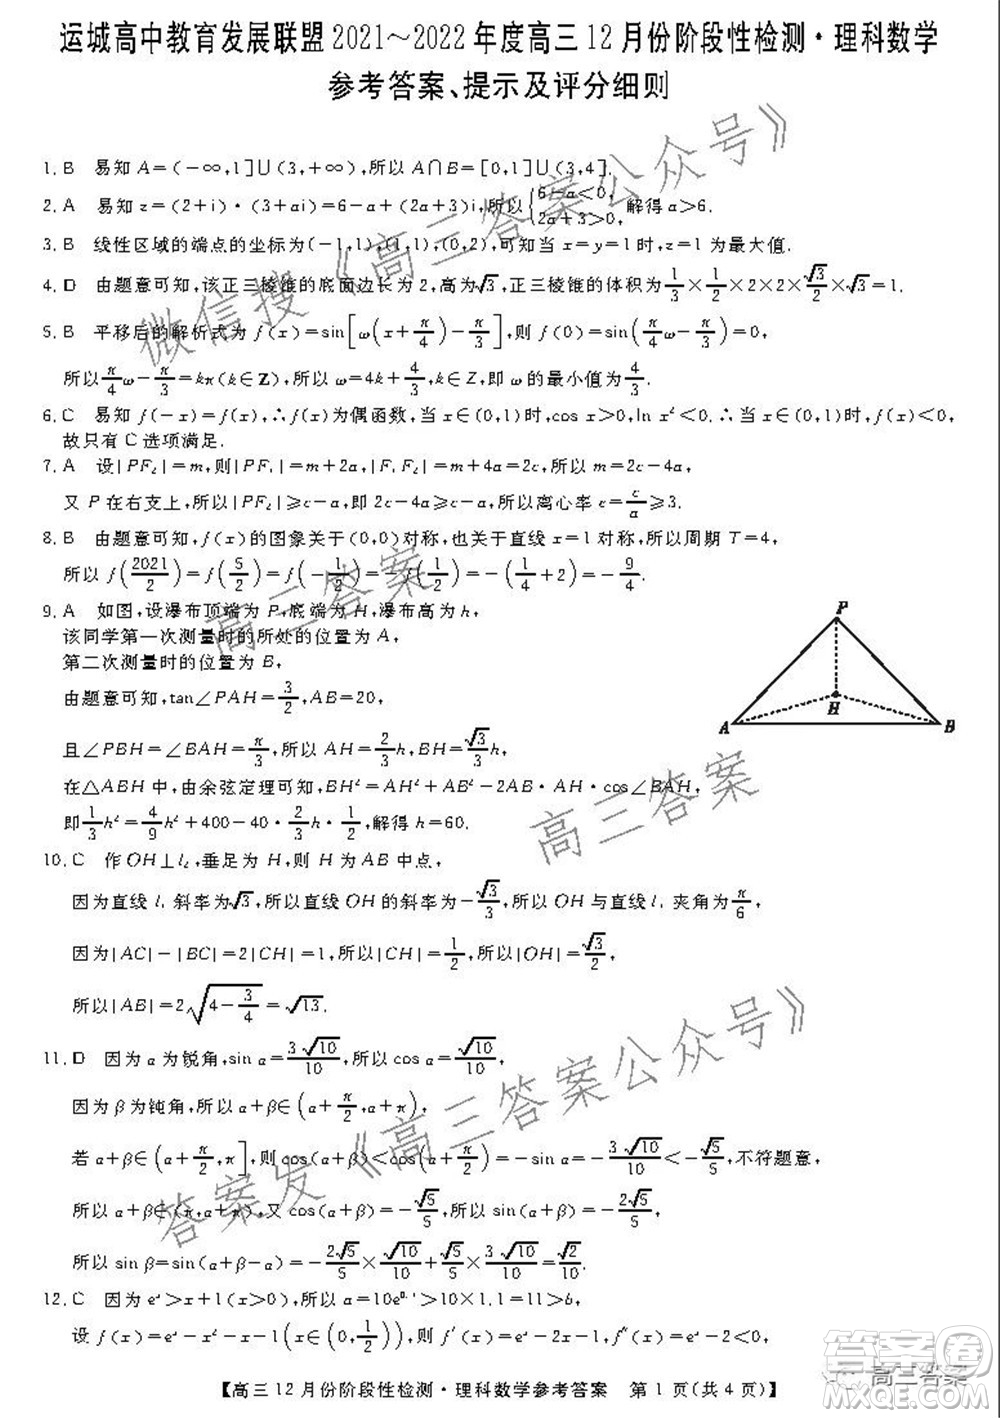 运城高中教育发展联盟 2021～2022 年度高三 12 月份阶段性检测·理科数学
参考答案、提示及评分细则
1. B 易知 A=(-∞,1]∪(3,+∞),所以 A∩B=[0,1]∪(3,4].
2. A 易知 z=(2+i)·(3+ai)=6-a+(2a+3)i,所以{6-a<0, 2a+3>0, 解得 a>6.
3. B 线性区域的端点的坐标为(-1,1),(1,1),(0,2),可知当 x=y=1 时,z=1 为最大值.
4. D 由题意可知,该正三棱锥的底面边长为 2,高为√3,正三棱锥的体积为 1/3×1/2×2×2×√3/2×√3=1.
5. B 平移后的解析式为 f(x)=sin[ω(x+π/4)-π/3],则 f(0)=sin(π/4 ω-π/3)=0,
所以 π/4 ω-π/3=kπ(k∈Z),所以 ω=4k+4/3,k∈Z,即 ω 的最小值为 4/3.
6. C 易知 f(-x)=f(x),∴f(x)为偶函数,当 x∈(0,1)时,cos x>0,ln x²<0.∴当 x∈(0,1)时,f(x)<0,
故只有 C 选项满足.
7. A 设|PF₂|=m,则|PF₁|=m+2a,|F₁F₂|=m+4a=2c,所以 m=2c-4a,
又 P 在右支上,所以|PF₂|≥c-a,即 2c-4a≥c-a,所以离心率 e=c/a≥3.
8. B 由题意可知,f(x)的图象关于(0,0)对称,也关于直线 x=1 对称,所以周期 T=4,
所以 f(2021/2)=f(5/2)=f(-1/2)=-f(1/2)=-(1/4+2)=-9/4.
9. A 如图,设瀑布顶端为 P,底端为 H,瀑布高为 h,
该同学第一次测量时的所处的位置为 A,
第二次测量时的位置为 B,
由题意可知,tan∠PAH=3/2,AB=20,
且∠PBH=∠BAH=π/3,所以 AH=2/3 h,BH=√3/3 h,
在△ABH 中,由余弦定理可知,BH²=AH²+AB²-2AB·AH·cos∠BAH,
即 1/3 h²=4/9 h²+400-40·2/3 h·1/2,解得 h=60.
P
H
A
B
10. C 作 OH⊥l₂,垂足为 H,则 H 为 AB 中点,
因为直线 l₁ 斜率为√3,所以直线 OH 的斜率为-√3/3,所以 OH 与直线 l₁ 夹角为 π/6,
因为|AC|-|BC|=2|CH|=1,所以|CH|=1/2,所以|OH|=√3/2,
所以|AB|=2√(4-3/4)=√13.
11. D 因为 α 为锐角,sin α=3√10/10,所以 cos α=√10/10,
因为 β 为钝角,所以 α+β∈(α+π/2,α+π),
若 α+β∈(α+π/2,π],则 cos(α+β)<cos(α+π/2)=-sin α=-3√10/10<-√5/5,不符题意,
所以 α+β∈(π,α+π),又 cos(α+β)=-√5/5,所以 sin(α+β)=-2√5/5,
所以 sin β=sin(α+β-α)=-2√5/5×√10/10+√5/5×3√10/10=√2/10.
12. C 因为 eˣ>x+1(x>0),所以 a=10e^0.1>10×1.1=11>b,
设 f(x)=eˣ-x²-x-1(x∈(0,1/2)),则 f′(x)=eˣ-2x-1,f″(x)=eˣ-2<0,
【高三 12 月份阶段性检测·理科数学参考答案 第 1 页(共 4 页)】
微信搜《高三答案公众号》
高三答案
高三答案
答案发《高三答案公众号》
高三答案
答案圈
MXQE.COM